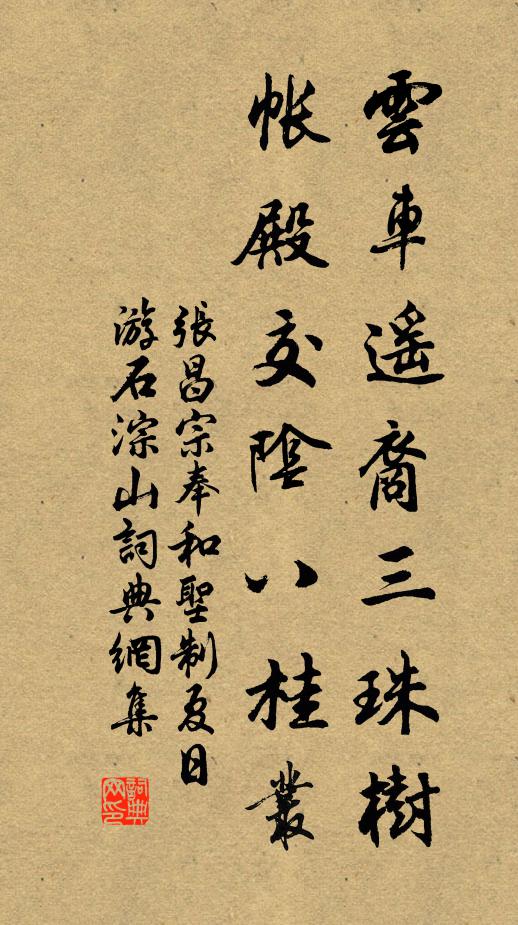 雲車遥裔三珠樹
帳殿交陰八桂叢
張昌宗奉和聖制夏日
游石淙山詞典網集
詞典
网印